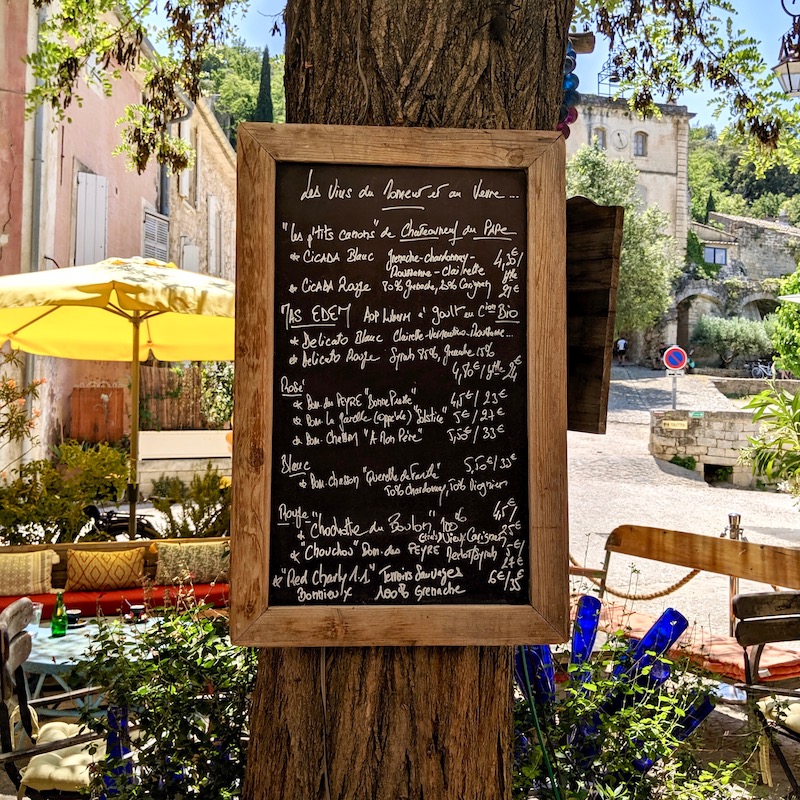 Les Vins du Moment et au Verre...
"Les p'tits canons" de Chateauneuf du Pape
* CICADA Blanc Grenache-chardonnay- 4,50€/
Roussanne-Clairette Btlle
* CICADA Rouge 70% Grenache, 25% Carignan 21€
MAS EDEM AOP Bio
* Delicato Blanc Clairette-Vermentino-Roussanne...
* Delicato Rouge Syrah 85% Grenache 15%
4,80€/Btlle 24€
Rosé
* Dom. du PEYRE "Bonne Pioche" 4,5€/23€
* Dom La Garelle "Solstice" 5€/27€
* Dom. Chasson "A Mon Père" 5,50€/33€
Blanc
* Dom. Chasson "Querelle de Famille" 5,50€/33€
50% Chardonnay, 50% Viognier
Rouge
* "Chochotte du Boulon" 100% 4,5€/
Vieux Carignan 25€
* "Chouchou" Dom. des PEYRE Merlot/Syrah 5€/
27€
* "Red Charly 1.1" Terroirs Sauvages 6€/35€
Bonnieux 100% Grenache